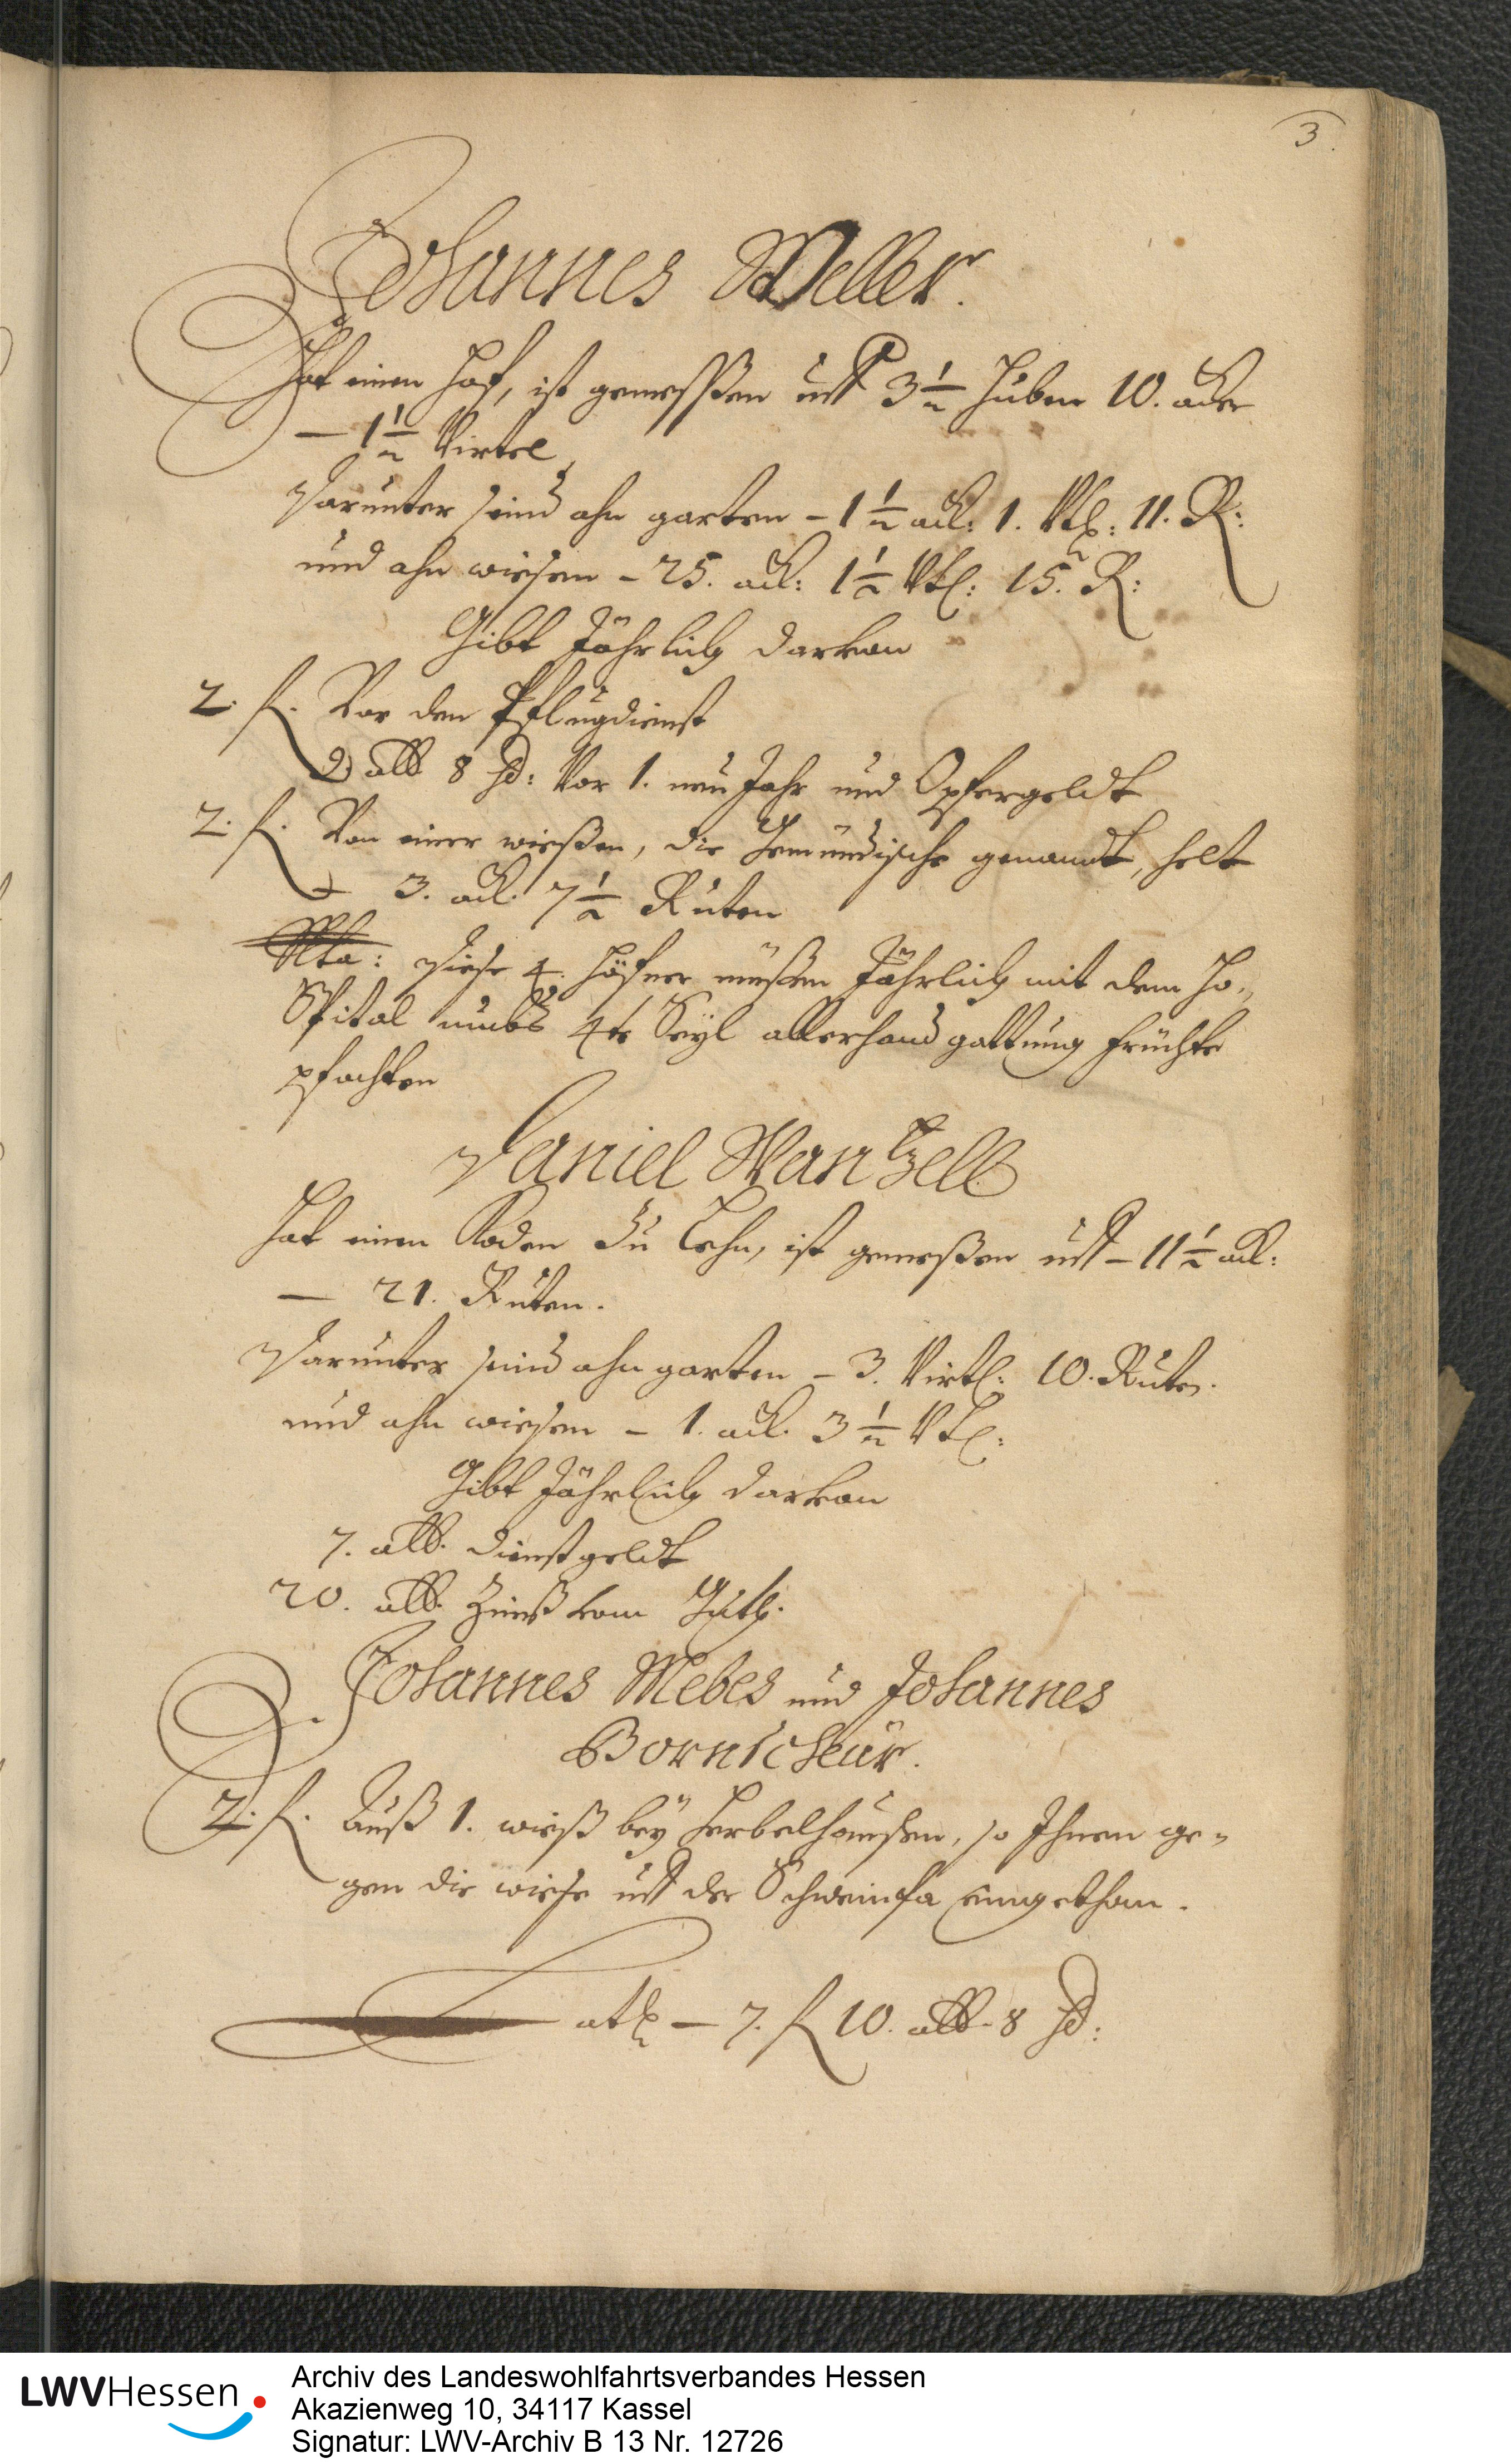 3.
Johannes Weller.
Hat einen Hof, ist gemessen uff 3 1/2 Huben 10. acker
— 1 1/2 Virtel
Darunter seind ahn garten – 1 1/2 ack: 1. Vtl: 11. R:
und ahn wiesen – 25. ack: 1 1/2 Vtl: 15. R:
Gibt Jährlich darvon
2. fl. Vor den Pflugdienst
9 alb 8 hl: Vor 1. neu Jahr und Opfergeldt
2. fl. Von einer wießen, die Gemündische genandt, helt
3. ack. 7 1/2 Ruten
Nta: Diese 4. Höfner müßen Jährlich mit dem Ho-
Spital umbs 4te Theyl allerhand gattung früchte
pfachten
Daniel Wantzell
Hat einen Roden zu Lehn, ist gemeßen uff – 11 1/2 ack:
— 21. Ruten.
Darunter seind ahn garten – 3. Virtl: 10. Ruten.
und ahn wiesen – 1. ack. 3 1/2 Vtl:
Gibt Jährlich darvon
7. alb. dienstgeldt
20. alb. Zinß vom
Johannes Mebes und Johannes
Bornscheür.
2. fl. Auß 1. wieß bey Herbelhaußen, so Ihnen ge-
gen die wiese uff der Schweinfa eingethan.
Lat – 7. fl 10. alb. 8 hl:
LWVHessen
Archiv des Landeswohlfahrtsverbandes Hessen
Akazienweg 10, 34117 Kassel
Signatur: LWV-Archiv B 13 Nr. 12726